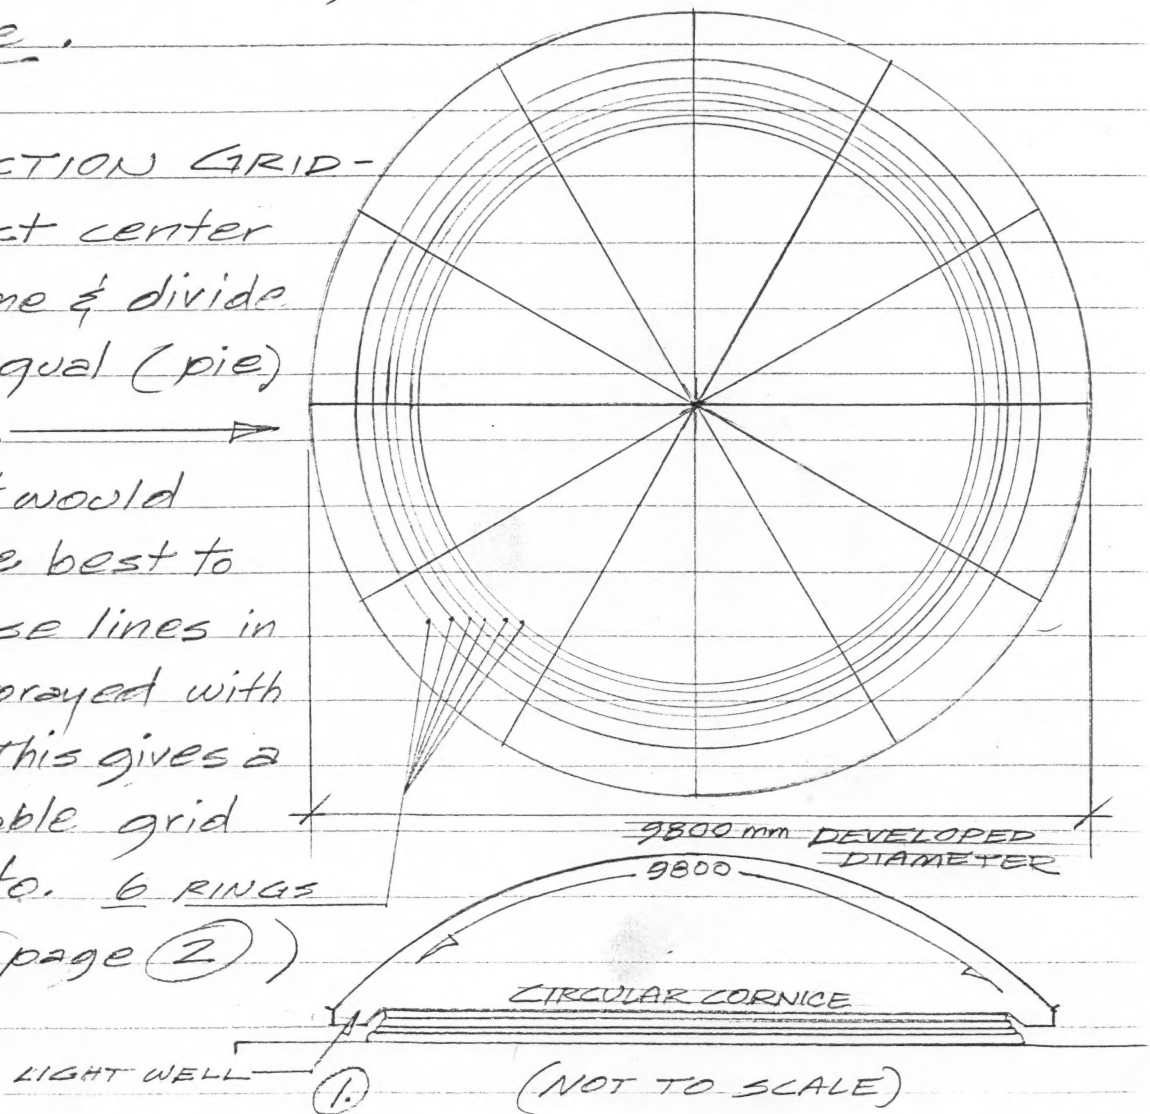 e.
CTION GRID-
ct center
ne & divide
qual (pie)
t would
e best to
se lines in
prayed with
This gives a
able grid
to. 6 RINGS
page 2)
9800 mm DEVELOPED
DIAMETER
9800
CIRCULAR CORNICE
LIGHT WELL
1. (NOT TO SCALE)